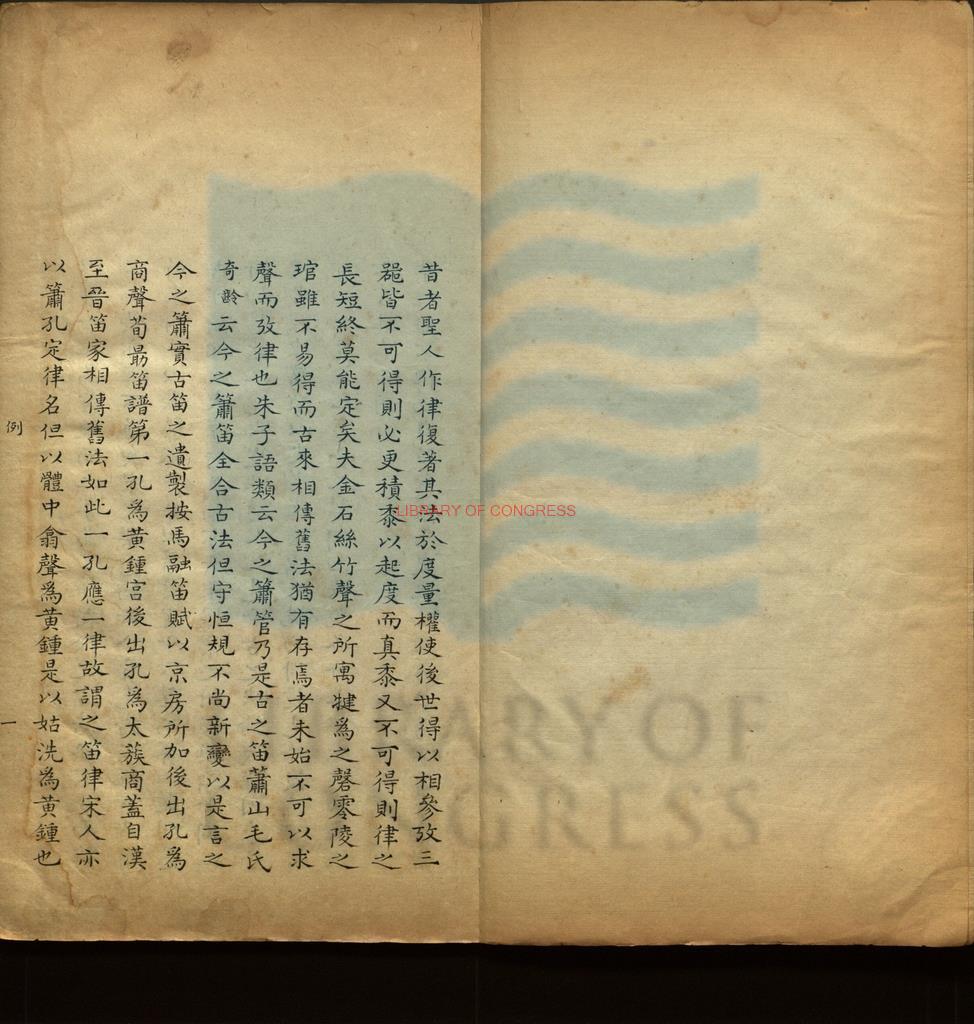 昔者聖人作律復著其法於度量權使後世得以相參攷三
噐皆不可得則必更積黍以起度而真黍又不可得則律之
長短終莫能定矣夫金石絲竹聲之所寓犍爲之磬零陵之
琯雖不易得而古來相傳舊法猶有存焉者未始不可以求
聲而攷律也朱子語類云今之簫管乃是古之笛蕭山毛氏
奇齡云今之簫笛全合古法但守恒規不尚新變以是言之
今之簫實古笛之遺製按馬融笛賦以京房所加後出孔爲
商聲荀朂笛譜第一孔爲黄鍾宫後出孔爲太蔟商蓋自漢
至晉笛家相傳舊法如此一孔應一律故謂之笛律宋人亦
以簫孔定律名但以體中翕聲爲黄鍾是以姑洗爲黄鍾也
例
一
LIBRARY OF CONGRESS